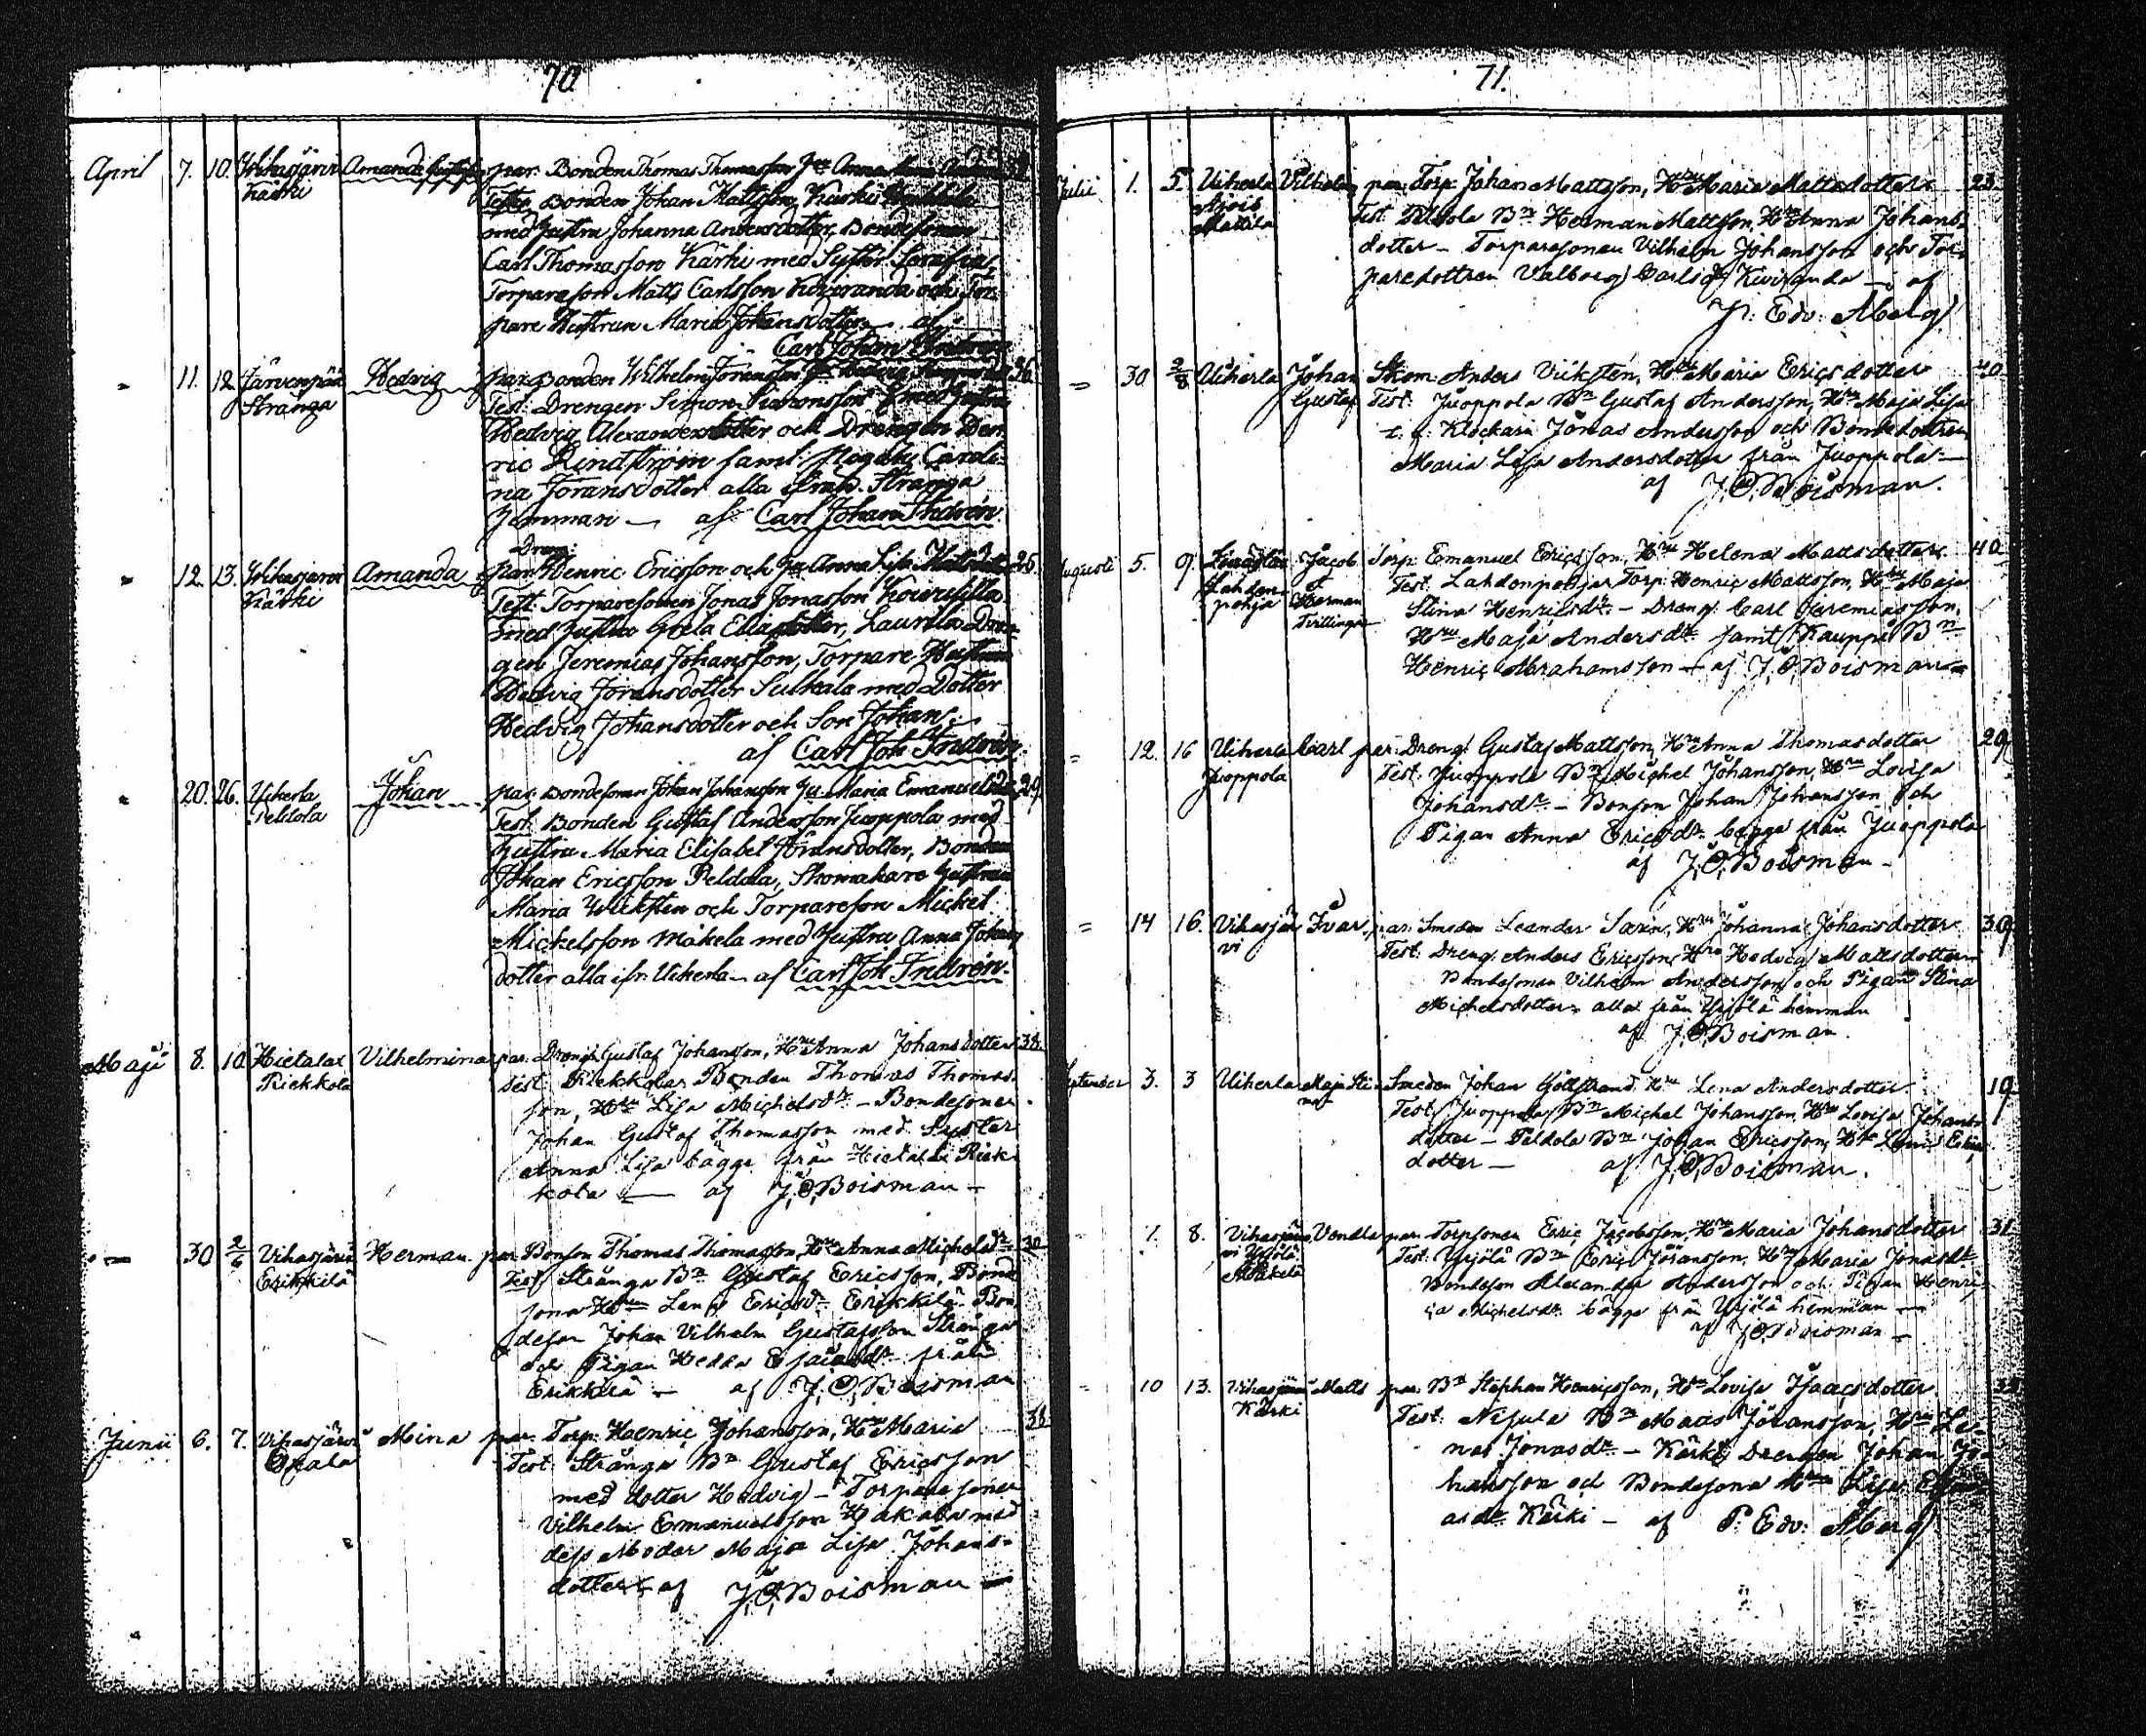 70
April 7. 10. Vihasjärvi Amanda Gustafva par. Bonden Thomas Thomasson Hu Anna Maria
Kärki Test. Bonden Johan Mattsson, Kärki
med hustru Johanna Andersdotter, Bondesonen
Carl Thomasson Kärki med Syster Serafia,
Torpareson Matts Carlsson Kiviranda och Tor-
pare Hustrun Maria Johansdotter — af
Carl Johan Indrén
" 11. 12. Järvenpää Hedvig par. Bonden Wilhelm Göransson Hu Hedvig 36.
Stränga Test. Drengen Simon Simonsson med hustru
Hedvig Alexandersdotter och Drengen Hen-
ric Lindström samt Pigan Caroli-
na Göransdotter alla ifrån Stränga
hemman — af Carl Johan Indrén.
Dreng.
" 12. 13. Vihasjärvi Amanda par. Henric Ericsson och Hu Anna Lisa Mattsdotter
Kärki Test. Torparesonen Jonas Jonasson
med hustru Greta Eliædotter, Laurila Dren-
gen Jeremias Johansson, Torpare Hustrun
Hedvig Göransdotter Sulkala med Dotter
Hedvig Johansdotter och Son Johan,
af Carl Joh Indrén.
" 20. 26. Uiherla Johan par. Bondesonen Johan Johansson Hu Maria Emanuelsdr 29.
Peldola Test. Bonden Gustaf Andersson Juoppola med
Hustru Maria Elisabet Göransdotter, Bonden
Johan Ericsson Peldola, Skomakare Hustrun
Maria Wicksten och Torpareson Mickel
Mickelsson Mäkelä med hustru Anna Johans
dotter alla ifr. Uiherla — af Carl Joh Indrén.
Maji 8. 10. Hietalax Vilhelmina par. Dreng. Gustaf Johansson, Hru Anna Johansdotter 38.
Riekkola Test. Riekkolas Bonden Thomas Thomas-
son, Hru Lisa Michelsdr — Bondesonen
Johan Gustaf Thomasson med Syster
Anna Lisa bägge från Hietalax Riek-
kola — af J. O. Boisman —
" — 30 2/6 Vihasjärvi Herman par. Bonson Thomas Thomasson, Hru Anna Michelsdr 30
Erikkilä Test. Stränga Bn Gustaf Ericsson, Bond
sona Hru Lena Ericsdr Erikkilä Bon
deson Johan Vilhelm Gustafsson Stränga
och Pigan Hedda Esaiasdr från
Erikkilä — af J. O. Boisman
Junii 6. 7. Vihasjärvi Mina par. Torp. Henric Johansson, Hru Maria 38
Test. Stränga Bn Gustaf Ericsson
med dotter Hedvig — Torparesonen
Vilhelm Emanuelsson Hakala med
dess Moder Maja Lisa Johans-
dotter — af J. O. Boisman —
71.
Julii 1. 5. Uiherla Vilhelm par. Torp. Johan Mattsson, Hru Maria Mattsdotter 23.
Mattila Test. Peldola Bn Herman Mattsson, Hru Anna Johans-
dotter — Torparesonen Vilhelm Johansson och Tor-
paredottren Valborg Carlsdr Kiviranda — af
P. Edv: Åberg
" 30 2/8 Uiherla Johan Skom. Anders Viksten, Hru Maria Ericsdotter 40
Gustaf Test. Juoppola Bn Gustaf Andersson, Hru Maja Lisa
Klockarn Jonas Andersson och Bondedottren
Maria Lisa Andersdotter från Juoppola —
af J. O. Boisman.
Augusti 5. 9. Jacob Torp. Emanuel Ericsson, Hru Helena Mattsdotter 40
Lahden- & Test. Lahdenpohjas Torp. Henric Mattsson, Hru Maja
pohja Herman Stina Henricsdr — Dreng. Carl Jeremiasson,
Tvillingar Hru Maja Andersdr samt Kauppi Bn
Henric Abrahamsson — af J. O. Boisman —
" 12. 16 Uiherla Carl par. Dreng. Gustaf Mattsson, Hru Anna Thomasdotter 29
Juoppola Test. Juoppola Bn Michel Johansson, Hru Lovisa
Johansdr — Bonson Johan Johansson och
Pigan Anna Ericsdr bägge från Juoppola
af J. O. Boisman —
" 14 16. Vihasjär Ivar, par. Smeden Leander Hru Johanna Johansdotter 39
vi Test. Dreng. Anders Ericsson, Hru Hedvig Mattsdotter —
Bondesonen Vilhelm Andersson och Pigan Stina
Michelsdotter alla från Yrjölä hemman
af J. O. Boisman.
September 3. 3 Uiherla Maja Sti- Smeden Johan Hru Lena Andersdotter 19
na Test. Juoppolas Bn Michel Johansson, Hru Lovisa Johans-
dotter — Peldola Bn Johan Ericsson, Hru
dotter — af J. O. Boisman.
" 7. 8. Vihasjär- Vendla par. Torpsonen Eric Jacobsson, Hru Maria Johansdotter 31
vi Yrjölä Test. Yrjölä Bn Eric Göransson, Hru Maria Jonasdr
Mäkelä Bondeson Alexander Andersson och Pigan Henri-
ca Michelsdr bägge från Yrjölä hemman —
af J. O. Boisman —
" 10 13. Vihasjärvi Matts par. Bn Stephan Henricsson, Hru Lovisa Isaacsdotter
Kärki Test. Nisula Bn Matts Johansson, Hru Le-
na Jonasdr — Kärki Drengen Johan Jo-
hansson och Bondesona Hru Lisa
asdr Kärki — af P. Edv: Åberg